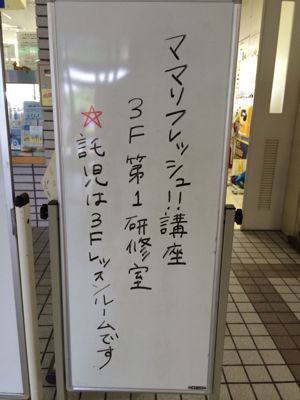 ママリフレッシュ!!講座
3F 第1研修室
☆託児は3Fレッスンルームです